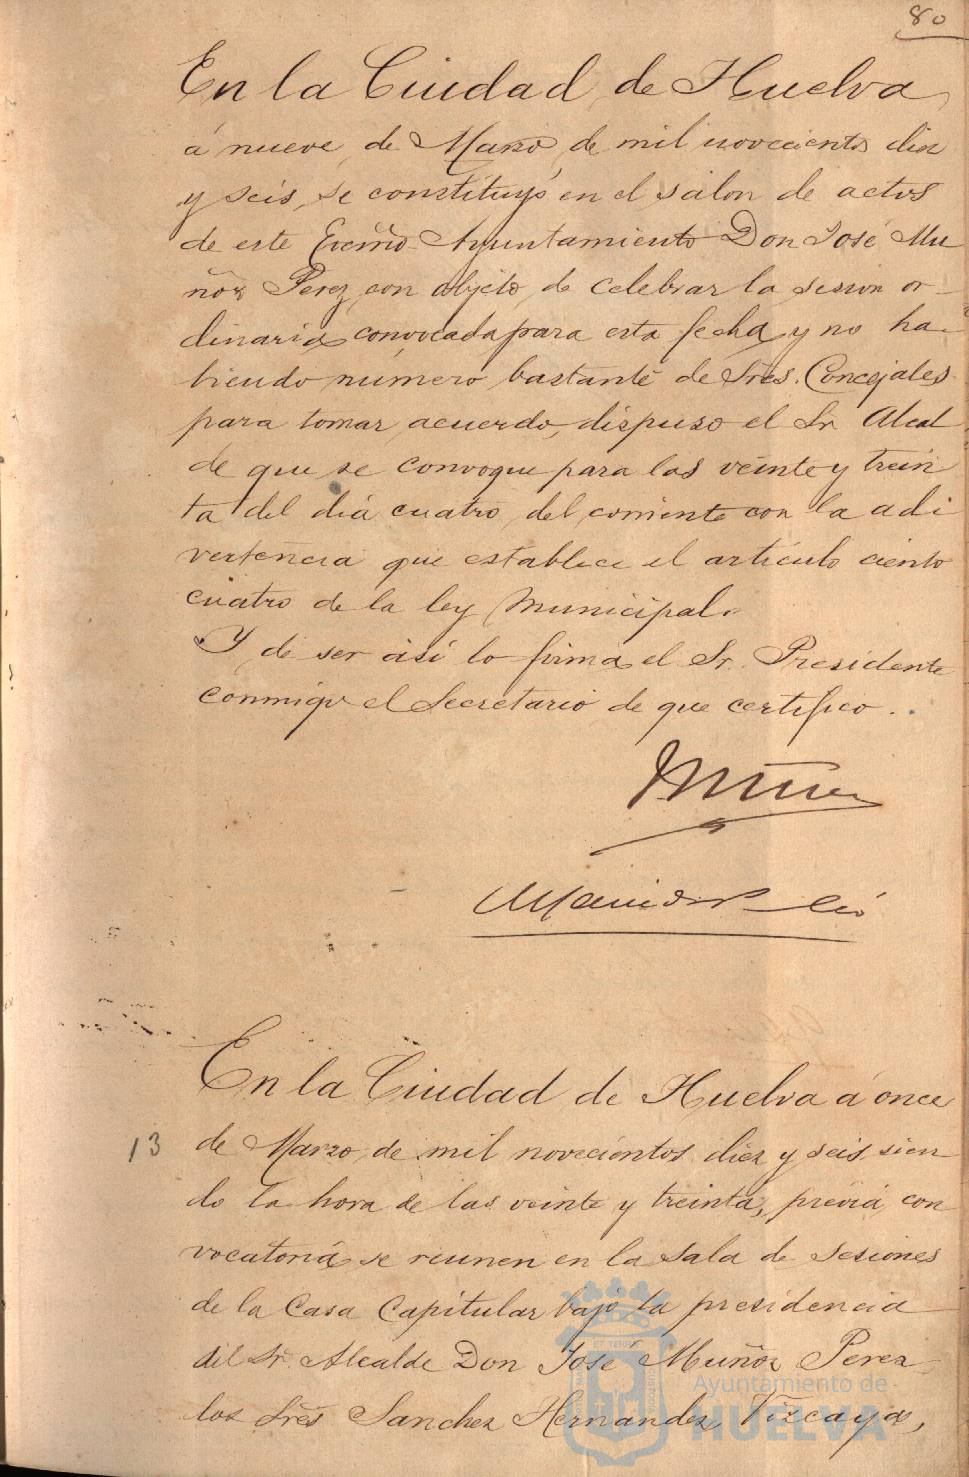 80
En la Ciudad de Huelva
á nueve de Marzo de mil novecientos diez
y seis, se constituyó en el salon de actos
de este Excmo Ayuntamiento Don José Mu
ñoz Perez con objeto de celebrar la sesion or-
dinaria convocada para esta fecha y no ha-
biendo número bastante de Sres. Concejales
para tomar acuerdo, dispuso el Sr. Alcal
de que se convoque para las veinte y trein
ta del día cuatro del corriente con la adi
vertencia que establece el artículo ciento
cuatro de la ley Municipal.
Y de ser así lo firma el Sr. Presidente
conmigo el Secretario de que certifico..
En la Ciudad de Huelva á once
13 de Marzo de mil novecientos diez y seis sien-
do la hora de las veinte y treinta, previa con
vocatoria se reunen en la Sala de Sesiones
de la Casa Capitular bajo la presidencia
del Sr. Alcalde Don José Muñoz Perez
los Sres Sanchez Hernandez, Vizcaya,
Ayuntamiento de
HUELVA